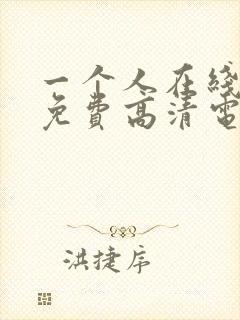 一个人在线
免费高清电
洪捷序